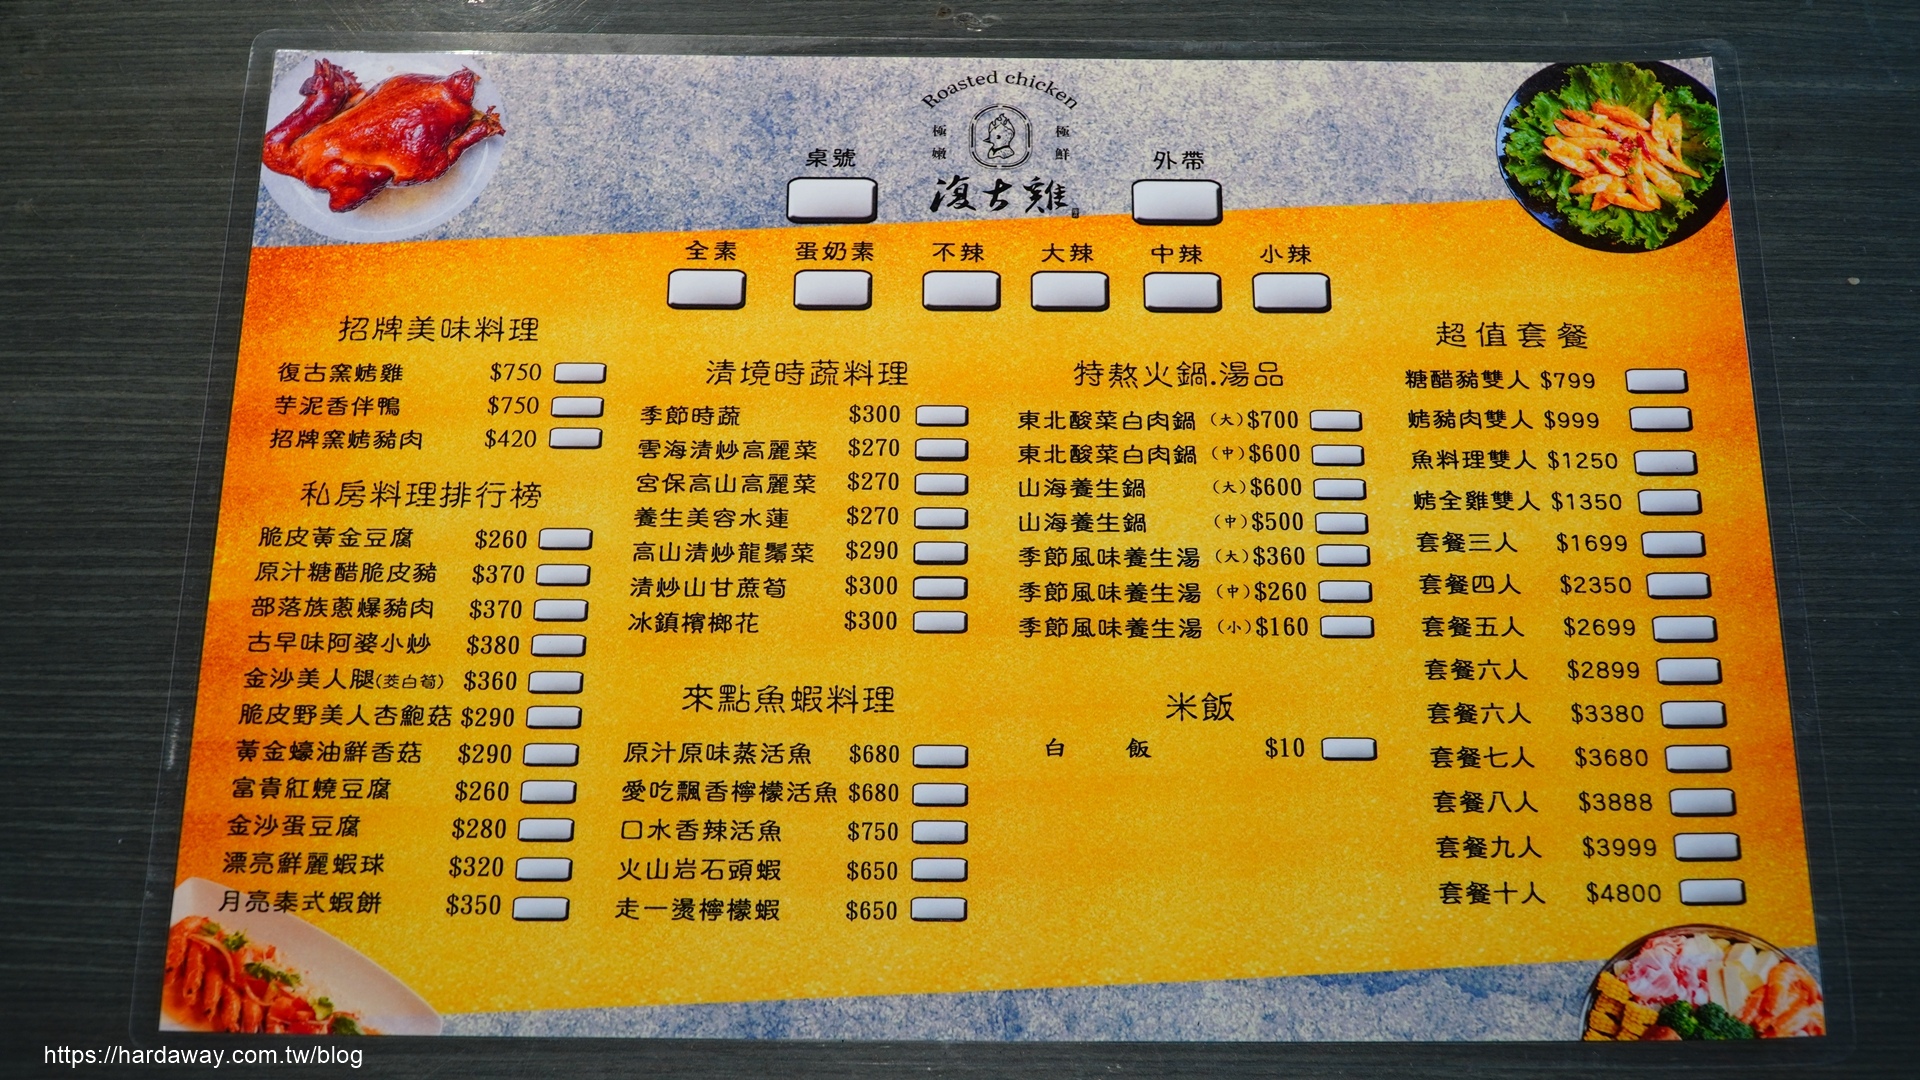 Roasted chicken
極嫩
極鮮
復古雞
桌號
外帶
全素 蛋奶素 不辣 大辣 中辣 小辣
招牌美味料理
復古窯烤雞 $750
芋泥香伴鴨 $750
招牌窯烤豬肉 $420
私房料理排行榜
脆皮黃金豆腐 $260
原汁糖醋脆皮豬 $370
部落族蔥爆豬肉 $370
古早味阿婆小炒 $380
金沙美人腿(茭白筍) $360
脆皮野美人杏鮑菇 $290
黃金蠔油鮮香菇 $290
富貴紅燒豆腐 $260
金沙蛋豆腐 $280
漂亮鮮麗蝦球 $320
月亮泰式蝦餅 $350
清境時蔬料理
季節時蔬 $300
雲海清炒高麗菜 $270
宮保高山高麗菜 $270
養生美容水蓮 $270
高山清炒龍鬚菜 $290
清炒山甘蔗筍 $300
冰鎮檳榔花 $300
來點魚蝦料理
原汁原味蒸活魚 $680
愛吃飄香檸檬活魚 $680
口水香辣活魚 $750
火山岩石頭蝦 $650
走一燙檸檬蝦 $650
特熬火鍋.湯品
東北酸菜白肉鍋 (大)$700
東北酸菜白肉鍋 (中)$600
山海養生鍋 (大)$600
山海養生鍋 (中)$500
季節風味養生湯 (大)$360
季節風味養生湯 (中)$260
季節風味養生湯 (小)$160
米飯
白 飯 $10
超值套餐
糖醋豬雙人 $799
烤豬肉雙人 $999
魚料理雙人 $1250
烤全雞雙人 $1350
套餐三人 $1699
套餐四人 $2350
套餐五人 $2699
套餐六人 $2899
套餐六人 $3380
套餐七人 $3680
套餐八人 $3888
套餐九人 $3999
套餐十人 $4800
https://hardaway.com.tw/blog